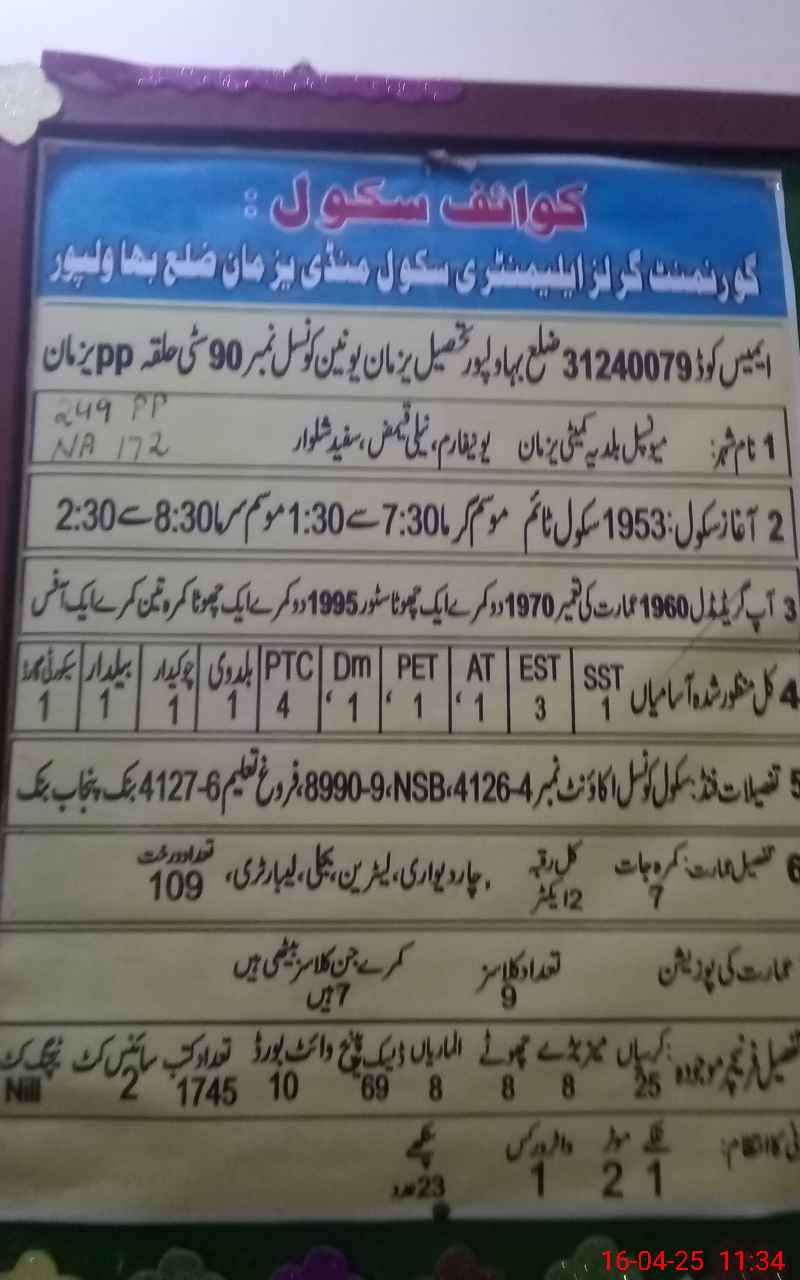 کوائف سکول :
گورنمنٹ گرلز ایلیمنٹری سکول منڈی یزمان ضلع بھاولپور
ایمیس کوڈ 31240079 ضلع بہاولپور تحصیل یزمان یونین کونسل نمبر 90 سٹی حلقہ pp یزمان
249 PP
NA 172
1 نام شہر: میونسپل بلدیہ کمیٹی یزمان یونیفارم، نیلی قمیض، سفید شلوار
2 آغاز سکول: 1953 سکول ٹائم موسم گرما 7:30 سے 1:30 موسم سرما 8:30 سے 2:30
3 آپ گریڈ مڈل 1960 عمارت کی تعمیر 1970 دو کمرے ایک چھوٹا سٹور 1995 دو کمرے ایک چھوٹا کمرہ تین کمرے ایک آفس
4 کل منظور شدہ آسامیاں SST 1 EST 3 AT 1 PET 1 Dm 1 PTC 4 بلدوی 1 چوکیدار 1 بیلدار 1 سیکورٹی گارڈ 1
5 تفصیلات فنڈ: سکول کونسل اکاؤنٹ نمبر 4126-4، NSB، 8990-9، فروغ تعلیم 4127-6 بنک پنجاب بنک
6 تفصیل عمارت: کمرہ جات 7 کل رقبہ 12 ایکٹر، چار دیواری، لیٹرین، بجلی، لیبارٹری، تعداد درخت 109
عمارت کی پوزیشن تعداد کلاسز 9 کمرے جن کلاسز بیٹھی ہیں 7 ہیں
تفصیل فرنیچر موجودہ: کرسیاں 25 میز بڑے 8 چھوٹے 8 الماریاں 8 ڈیسک بینچ 69 وائٹ بورڈ 10 تعداد کتب 1745 سائنس کٹ 2 ٹیچنگ کٹ Nill
کا انتظام: نلکے 1 موٹر 2 واٹر ورکس 1 پنکھے 23 عدد
16-04-25 11:34